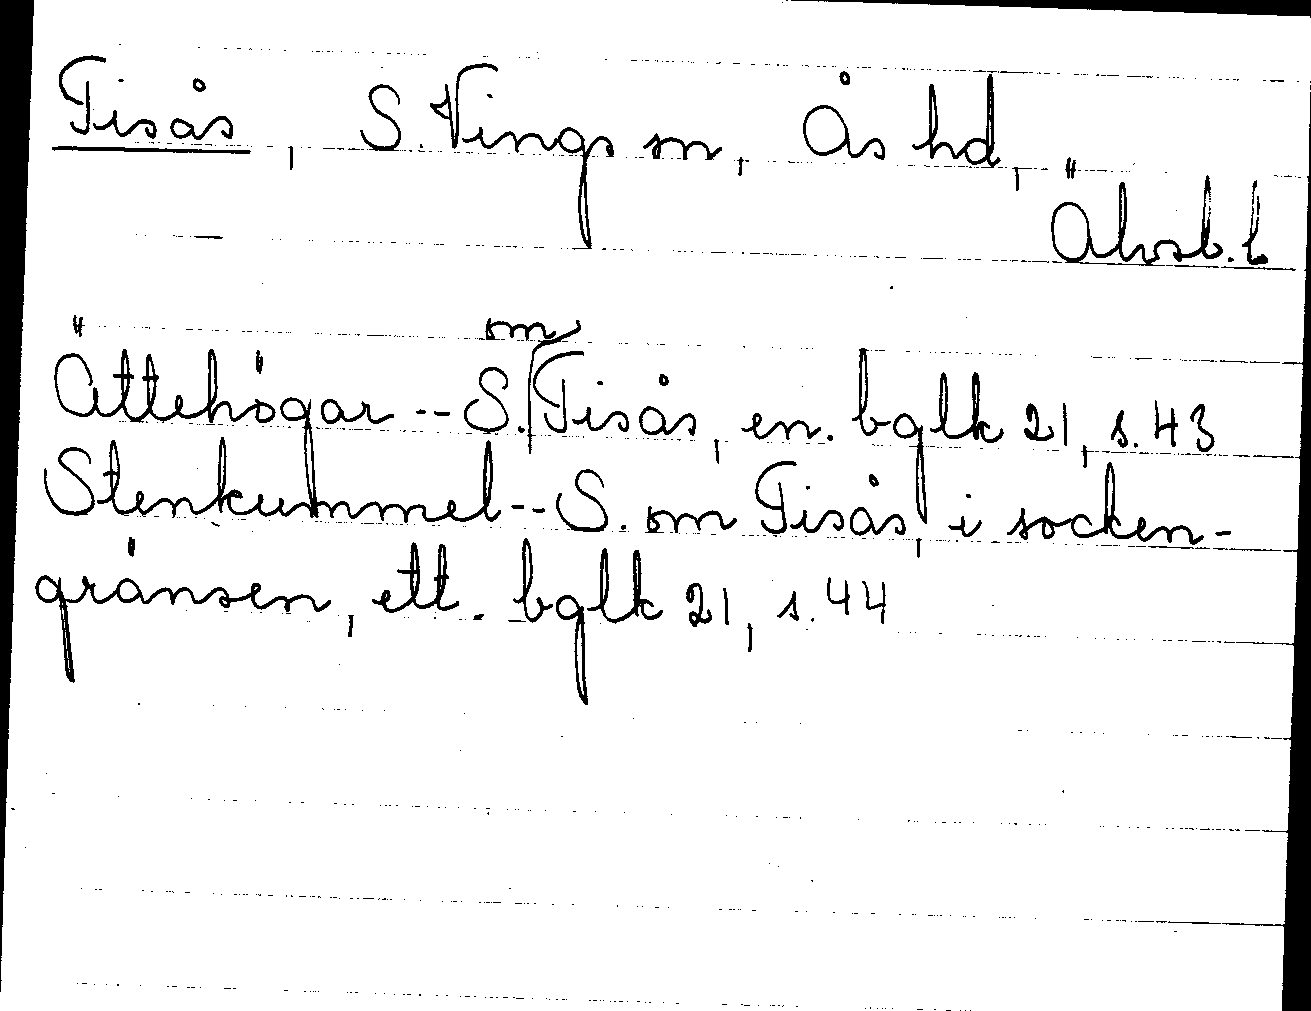 Tisås, S. Vings sn, Ås hd,
Älvsb. l
Ättehögar -- S. om Tisås, en. bglk 21, s. 43
Stenkummel -- S. om Tisås, i socken-
gränsen, ett. bglk 21, s. 44